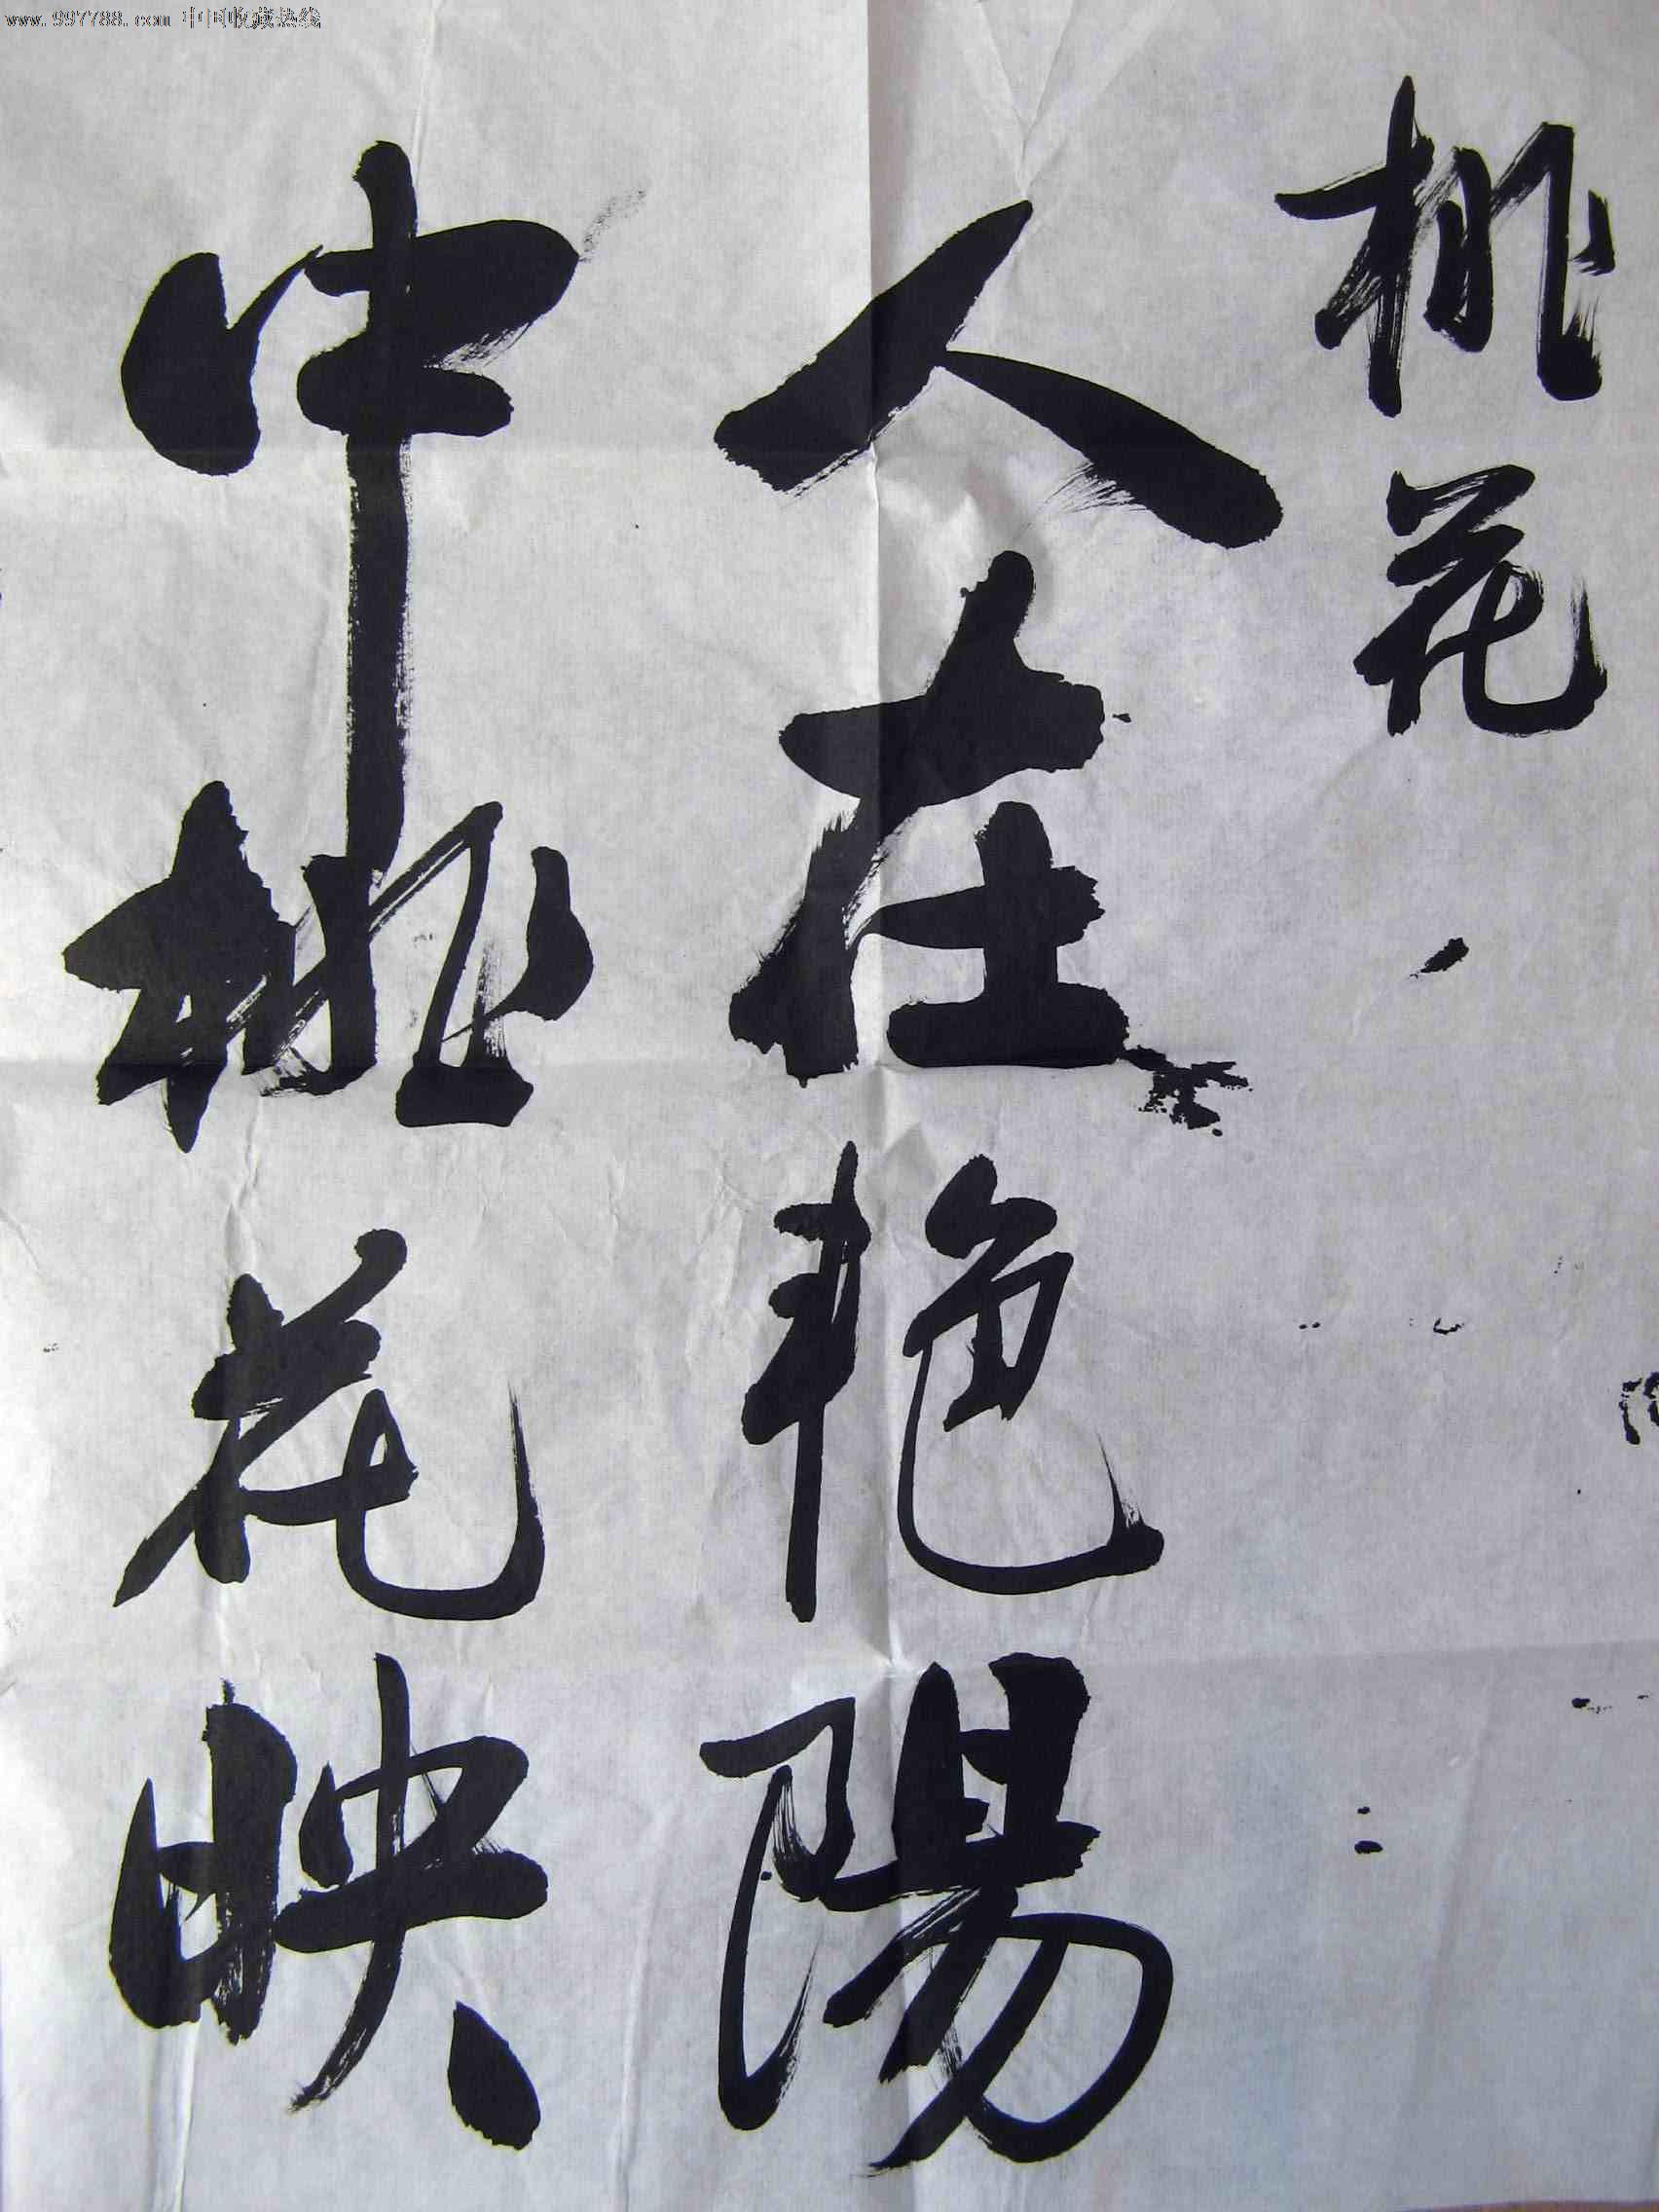 www.997788.com 中国收藏热线
桃花
人在艳陽
中桃花映